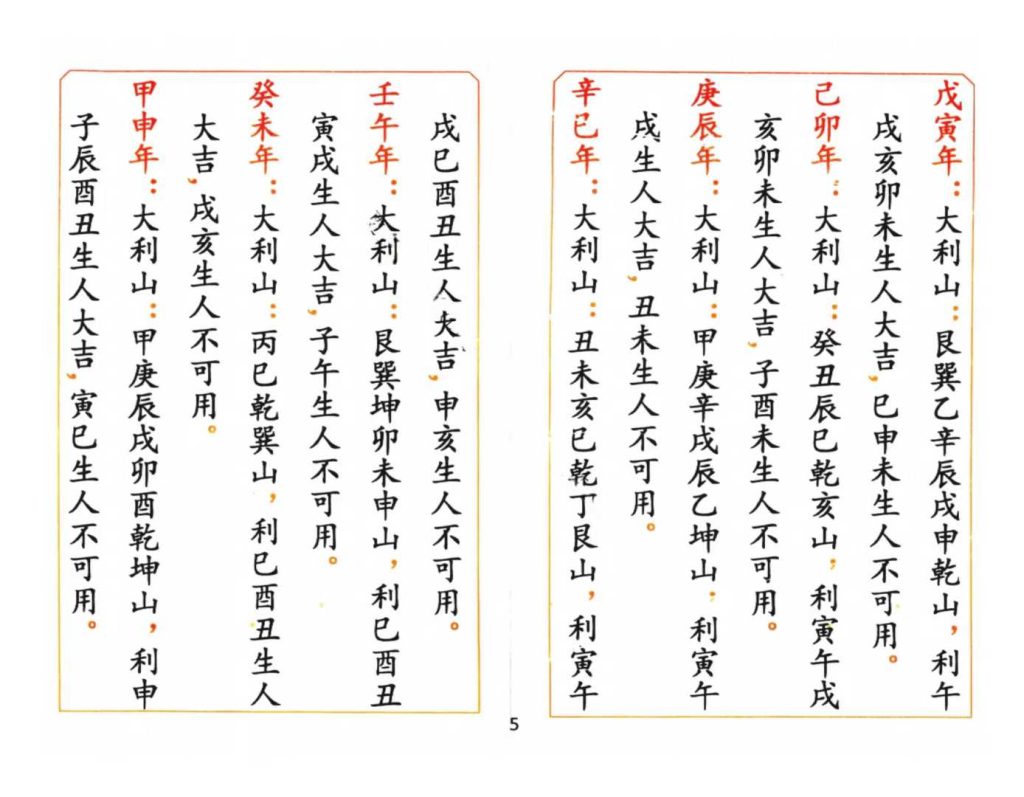 戊寅年：大利山：艮巽乙辛辰戌申乾山，利午
戌亥卯未生人大吉，巳申未生人不可用。
己卯年：大利山：癸丑辰巳乾亥山；利寅午戌
亥卯未生人大吉，子酉未生人不可用。
庚辰年：大利山：甲庚辛戌辰乙坤山；利寅午
戌生人大吉，丑未生人不可用。
辛巳年：大利山：丑未亥巳乾丁艮山，利寅午
戌巳酉丑生人大吉，申亥生人不可用。
壬午年：大利山：艮巽坤卯未申山，利巳酉丑
寅戌生人大吉，子午生人不可用。
癸未年：大利山：丙巳乾巽山，利巳酉丑生人
大吉，戌亥生人不可用。
甲申年：大利山：甲庚辰戌卯酉乾坤山，利申
子辰酉丑生人大吉，寅巳生人不可用。
5